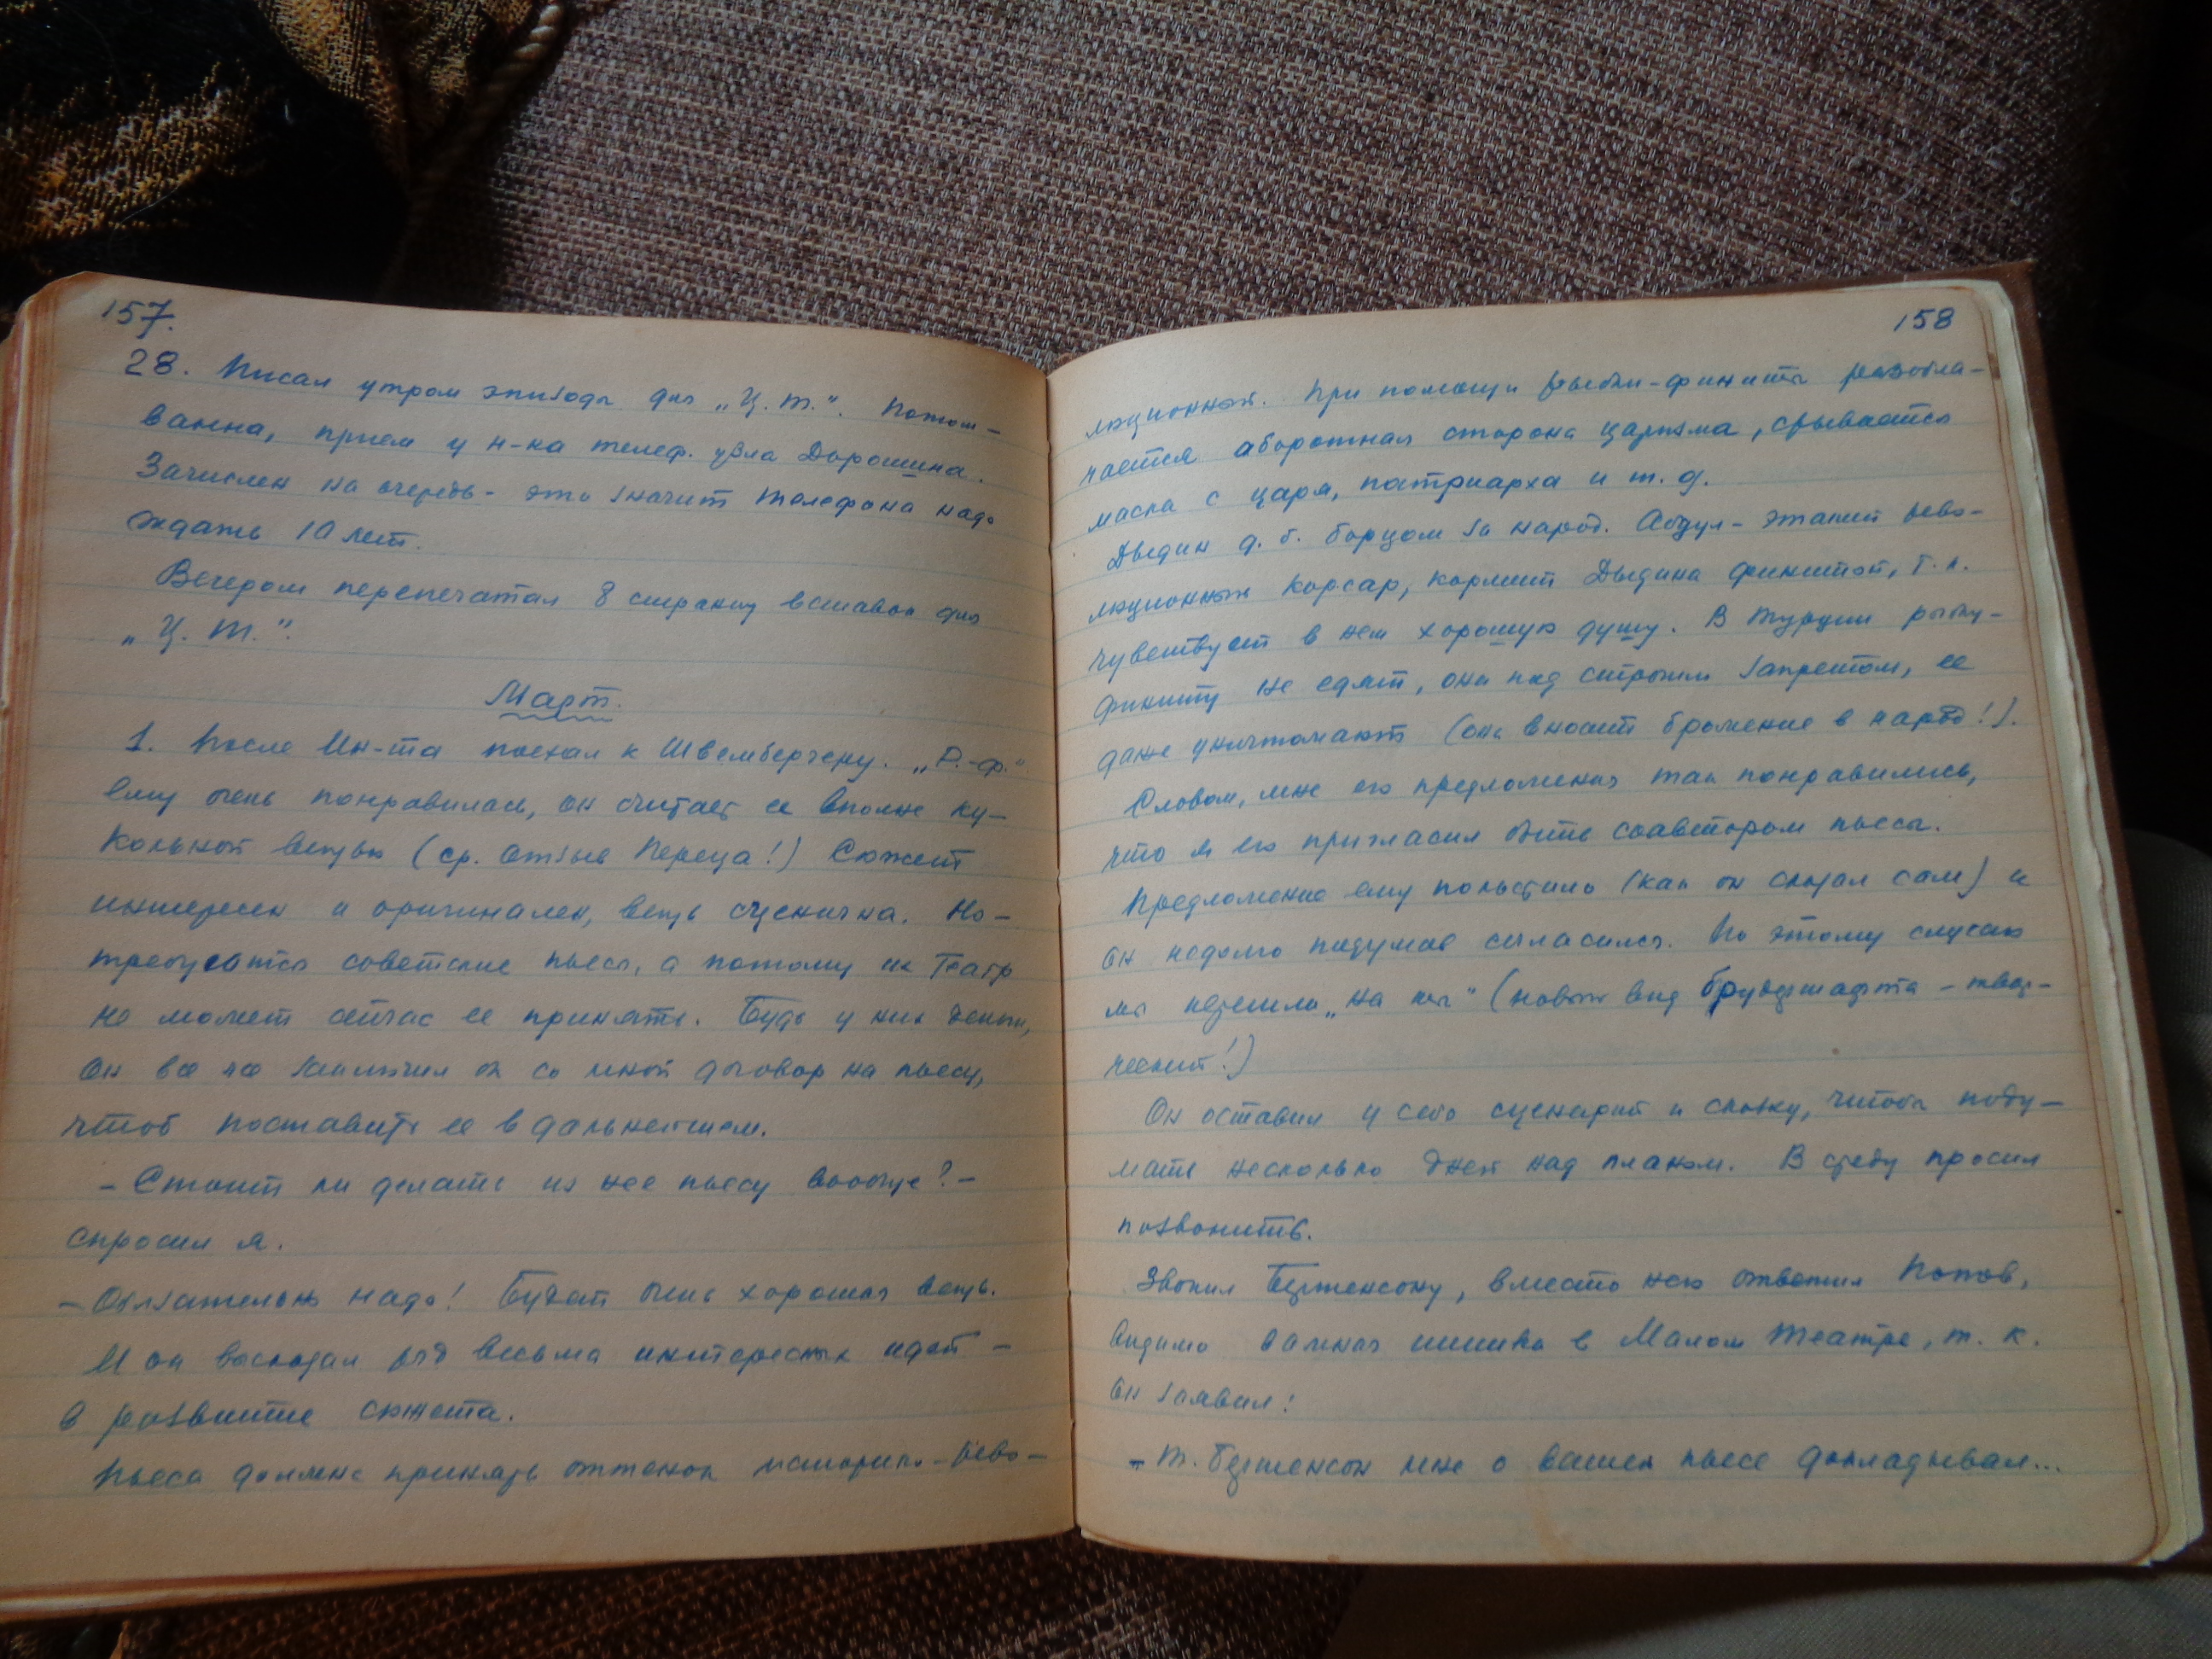 157.
28. Писал утром эпизоды для „Ц. Т.“. Потом –
ванна, прием у н-ка телеф. узла Дорошина.
Зачислен на очередь – это значит телефона надо
ждать 10 лет.
Вечером перепечатал 8 страниц вставок для
„Ц. Т.“.
Март.
1. После Ин-та поехал к Швембергеру. „Р.-ф.“
ему очень понравилась, он считает ее вполне ку-
кольной вещью (ср. отзыв Переца!) Сюжет
интересен и оригинален, вещь сценична. Но –
требуются советские пьесы, а потому их Театр
не может сейчас ее принять. Будь у них деньги,
он все же заключил бы со мной договор на пьесу,
чтоб поставить ее в дальнейшем.
– Стоит ли делать из нее пьесу вообще? –
спросил я.
– Обязательно надо! Будет очень хорошая вещь.
И он высказал ряд весьма интересных идей –
в развитие сюжета.
Пьеса должна принять оттенок историко-рево-
158
люционный. При помощи рыбки-финиты разобла-
чается оборотная сторона царизма, срывается
маска с царя, патриарха и т. д.
Дыдин д. б. борцом за народ. Абдул – этакий рево-
люционный корсар, кормит Дыдина финитой, т. к.
чувствует в нем хорошую душу. В Турции рыбу-
финиту не едят, она под строгим запретом, ее
даже уничтожают (она вносит брожение в народ!).
Словом, мне его предложения так понравились,
что я его пригласил быть соавтором пьесы.
Предложение ему польстило (как он сказал сам) и
он недолго подумав согласился. По этому случаю
мы перешли „на ты“ (новый вид брудершафта – твор-
ческий!)
Он оставил у себя сценарий и сказку, чтобы поду-
мать несколько дней над планом. В среду просил
позвонить.
Звонил Бертенсону, вместо него ответил Попов,
видимо важная шишка в Малом театре, т. к.
он заявил:
– Т. Бертенсон мне о вашей пьесе докладывал...